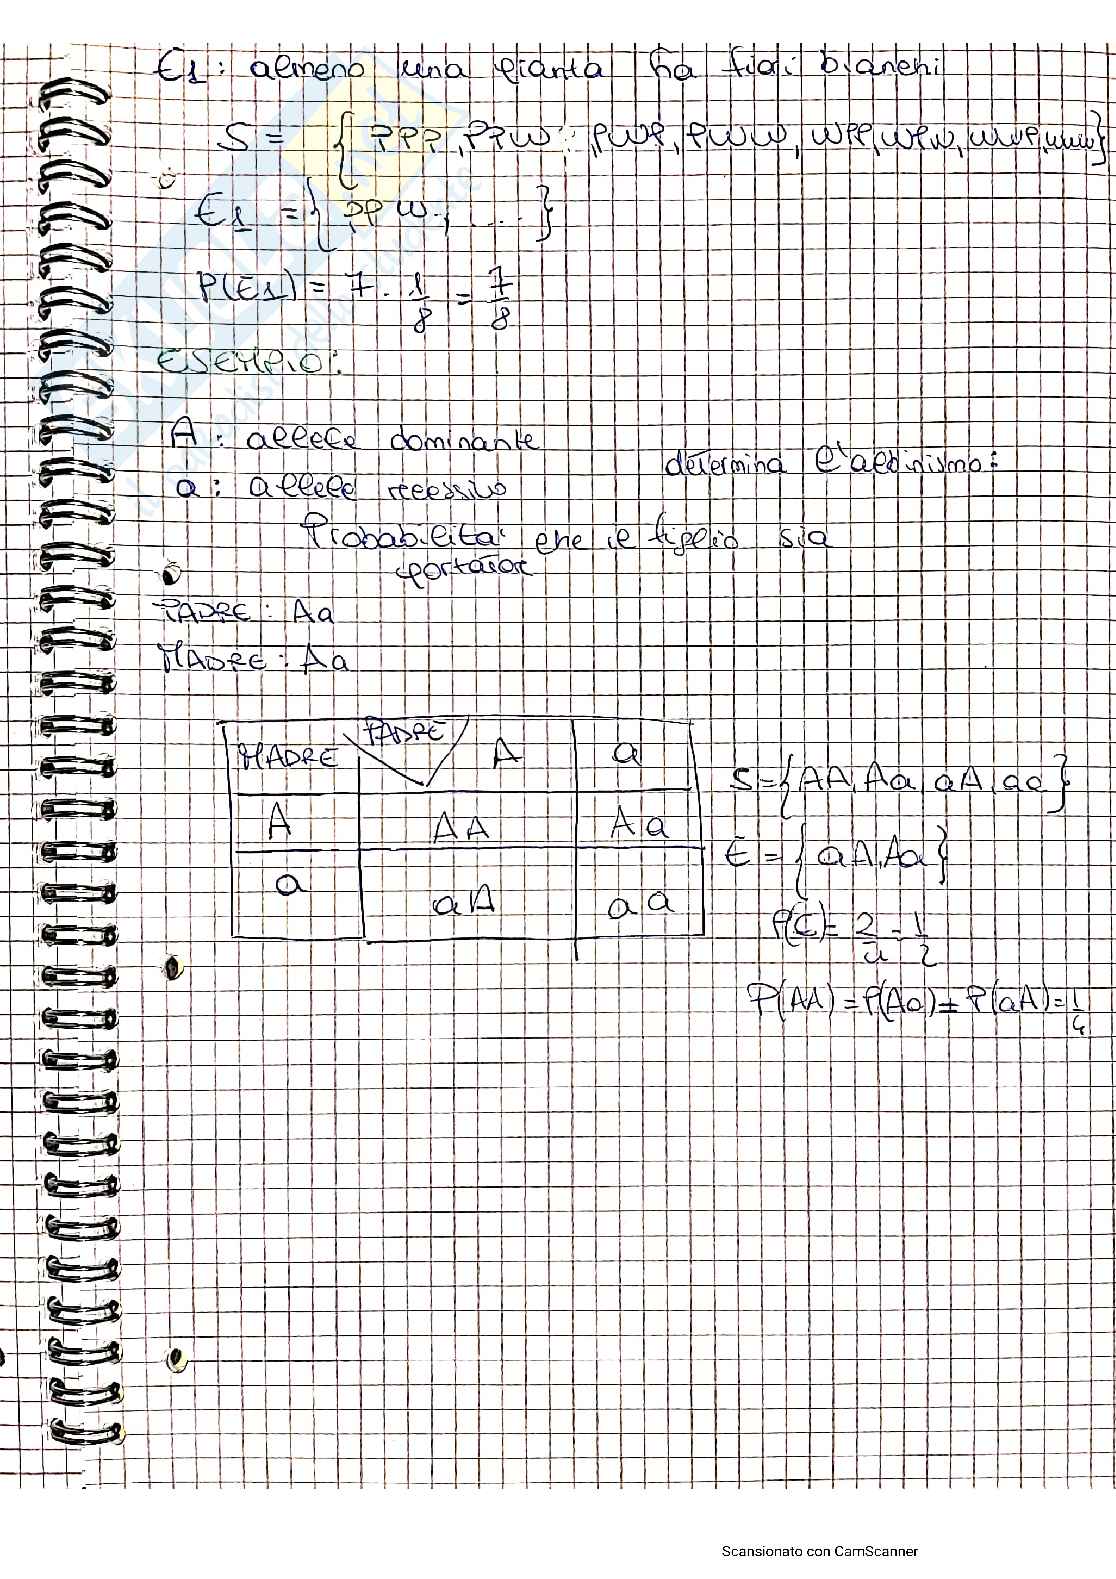 E1: almeno una pianta ha fiori bianchi
S = { PPP, PPW, PWP, PWW, WPP, WPW, WWP, WWW}
E1 = { PPW, ... }
P(E1) = 7 · 1/8 = 7/8
ESEMPIO:
A: allele dominante
determina l'albinismo:
a: allele recessivo
Probabilità che il figlio sia
portatore
PADRE: Aa
MADRE: Aa
MADRE PADRE A a
A AA Aa
a aA aa
S={AA, Aa, aA, aa}
E = { aA, Aa}
P(E)= 2/4 = 1/2
P(AA) = P(Aa) = P(aA) = 1/4
Scansionato con CamScanner